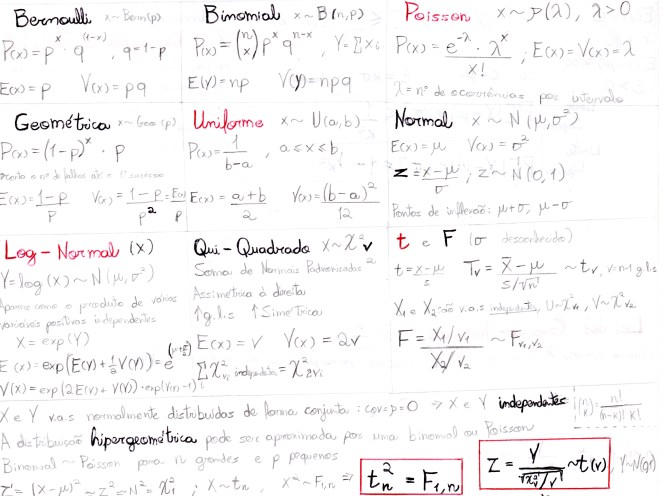 Bernoulli x~Bern(p)
P(x) = p^x · q^(1-x) , q=1-p
E(x) = p V(x) = pq
Binomial x~B(n,p)
P(x) = (n x) p^x q^(n-x) , Y=Σxi
E(Y) = np V(Y) = npq
Poisson x~P(λ), λ>0
P(x) = e^-λ · λ^x / x! ; E(x)=V(x)=λ
λ = nº de ocorrências por intervalo
Geométrica x~Geo(p)
P(x) = (1-p)^x · p
E(x) = 1-p / p V(x) = 1-p / p^2 = E(x) / p
Uniforme x~U(a,b)
P(x) = 1 / b-a , a≤x≤b
E(x) = a+b / 2 V(x) = (b-a)^2 / 12
Normal x~N(μ,σ²)
E(x)=μ V(x)=σ²
Z = x-μ / σ ; Z~N(0,1)
Pontos de inflexão: μ+σ, μ-σ
Log-Normal (X)
Y=log(x)~N(μ,σ²)
Aparece como o produto de várias
variáveis positivas independentes
X = exp(Y)
E(x) = exp(E(Y)+½V(Y)) =
V(X) = exp(2E(Y)+V(Y))·
Qui-Quadrado X~χ²v
Soma de Normais Padronizadas ²
Assimetrica à direita
↑g.l.s ↑Simetrica
E(X)=v V(X)=2v
Σχ²vi independentes = χ²Σvi
t e F (σ desconhecido)
t = x-μ / s Tv = X̄-μ / s/√n ~ tv, v=n-1 g.l.s
X1 e X2 são v.a.s independentes, U~χ²v1, V~χ²v2
F = X1/v1 / X2/v2 ~ Fv1,v2
X e Y v.a.s normalmente distribuídas de forma conjunta: cov=ρ=0 → X e Y independentes
(n k) = n! / (n-k)! k!
A distribuição hipergeométrica pode ser aproximada por uma binomial ou Poisson
Binomial ~ Poisson para n grandes e p pequenos
Z² = (X-μ)² ~ Z² = N² = χ²1 ; X~tn , X²~F1,n ⇒ t²n = F1,n
Z = Y / √χ²v/v ~ t(v) , Y~N(0,1)